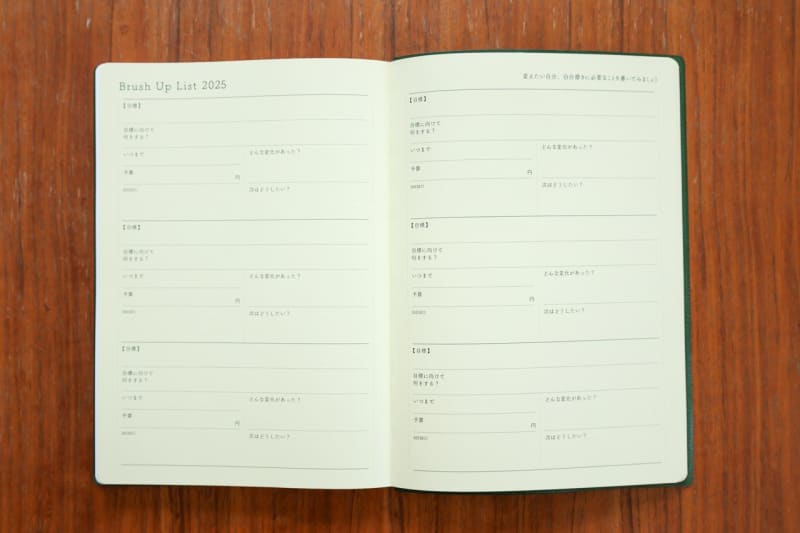 Brush Up List 2025
【目標】
目標に向けて
何をする？
いつまで
どんな変化があった？
予算
円
MEMO
次はどうしたい？
【目標】
目標に向けて
何をする？
いつまで
どんな変化があった？
予算
円
MEMO
次はどうしたい？
【目標】
目標に向けて
何をする？
いつまで
どんな変化があった？
予算
円
MEMO
次はどうしたい？
変えたい自分、自分磨きに必要なことを書いてみましょう
【目標】
目標に向けて
何をする？
いつまで
どんな変化があった？
予算
円
MEMO
次はどうしたい？
【目標】
目標に向けて
何をする？
いつまで
どんな変化があった？
予算
円
MEMO
次はどうしたい？
【目標】
目標に向けて
何をする？
いつまで
どんな変化があった？
予算
円
MEMO
次はどうしたい？